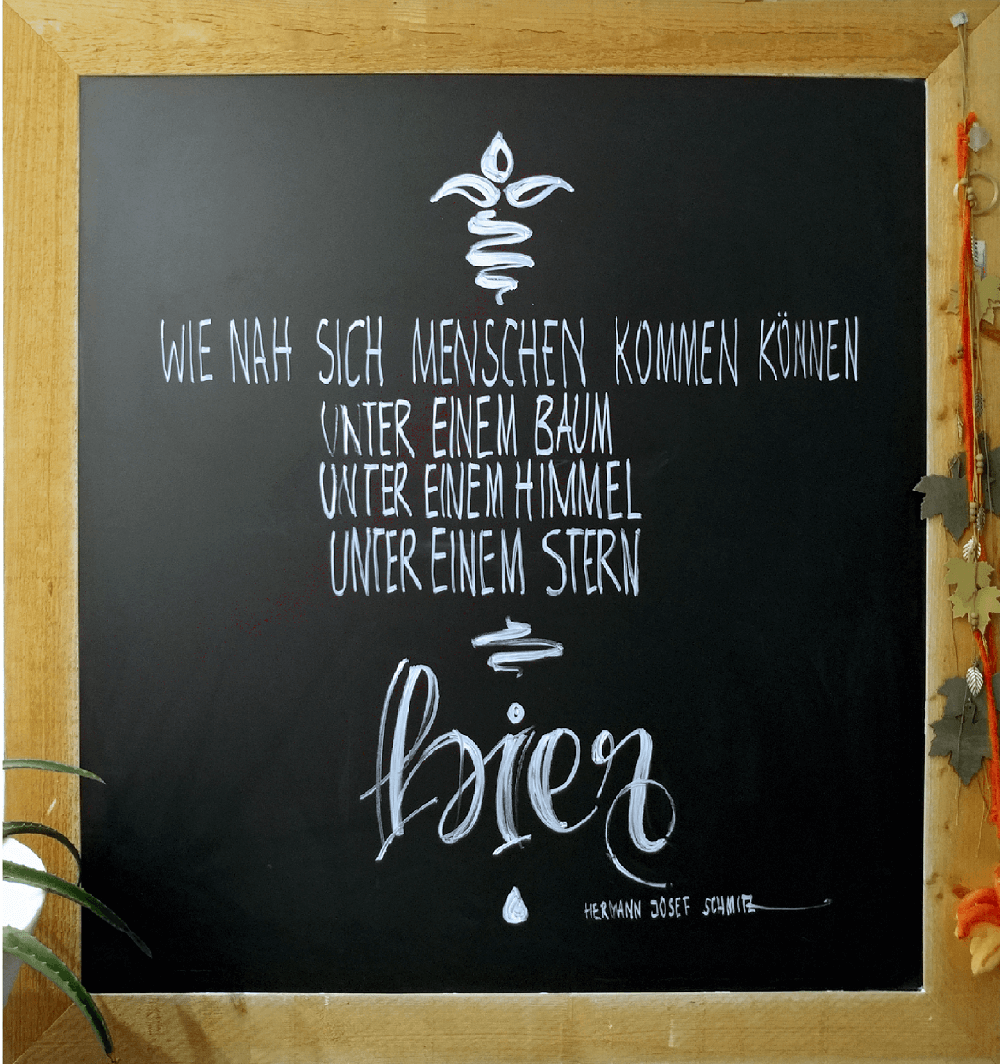 WIE NAH SICH MENSCHEN KOMMEN KÖNNEN
UNTER EINEM BAUM
UNTER EINEM HIMMEL
UNTER EINEM STERN
hier
HERMANN JOSEF SCHMITZ